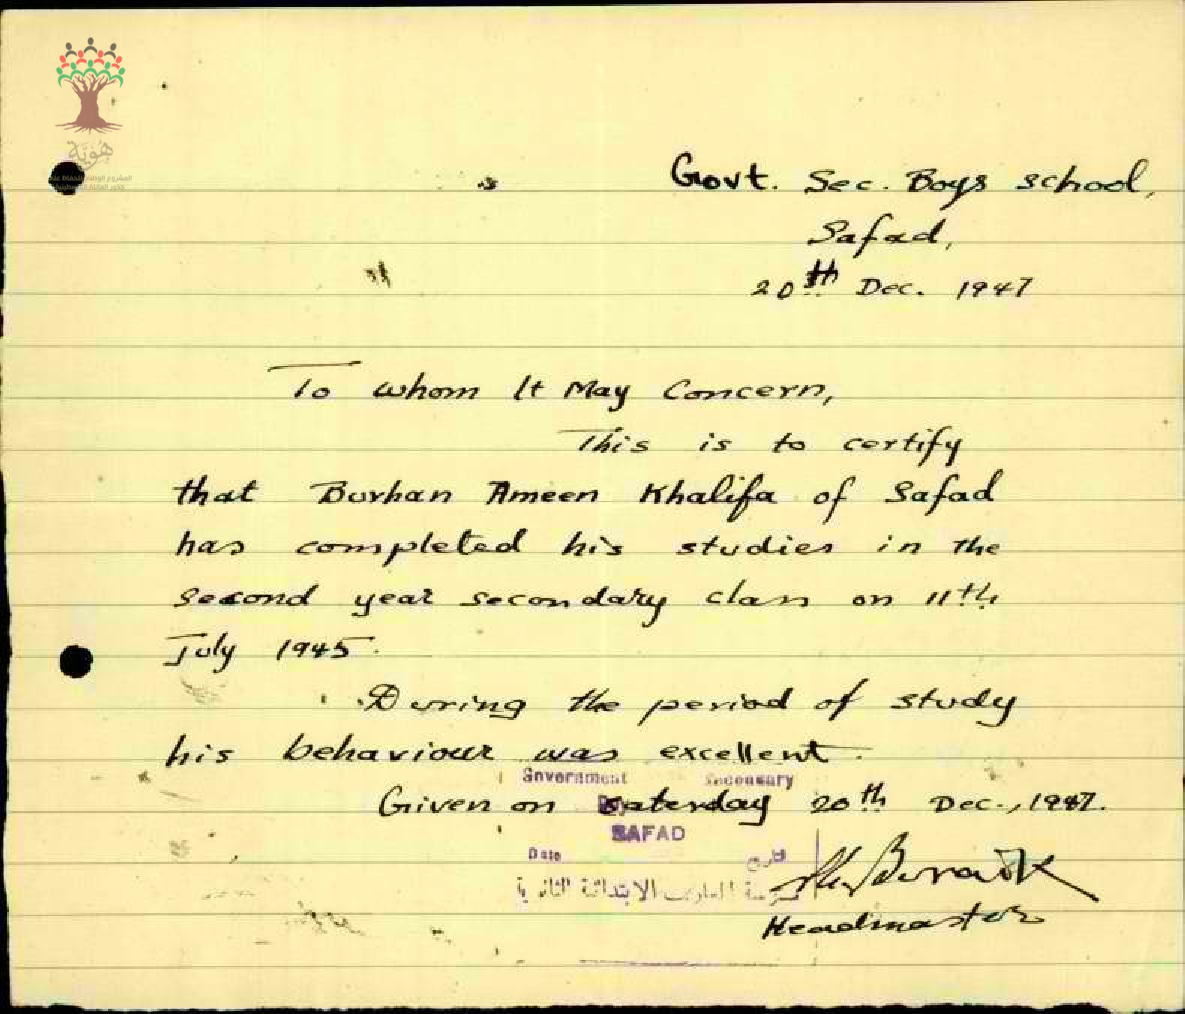 هوية
Govt. Sec. Boys school,
Safad,
20th Dec. 1947
To Whom It May Concern,
This is to certify
that Burhan Ameen Khalifa of Safad
has completed his studies in the
second year secondary class on 11th
July 1945.
During the period of study
his behaviour was excellent.
Government Secondary
Given on Saterday 20th Dec., 1947.
SAFAD
Date تاريخ
الابتدائية الثانوية
Headmaster